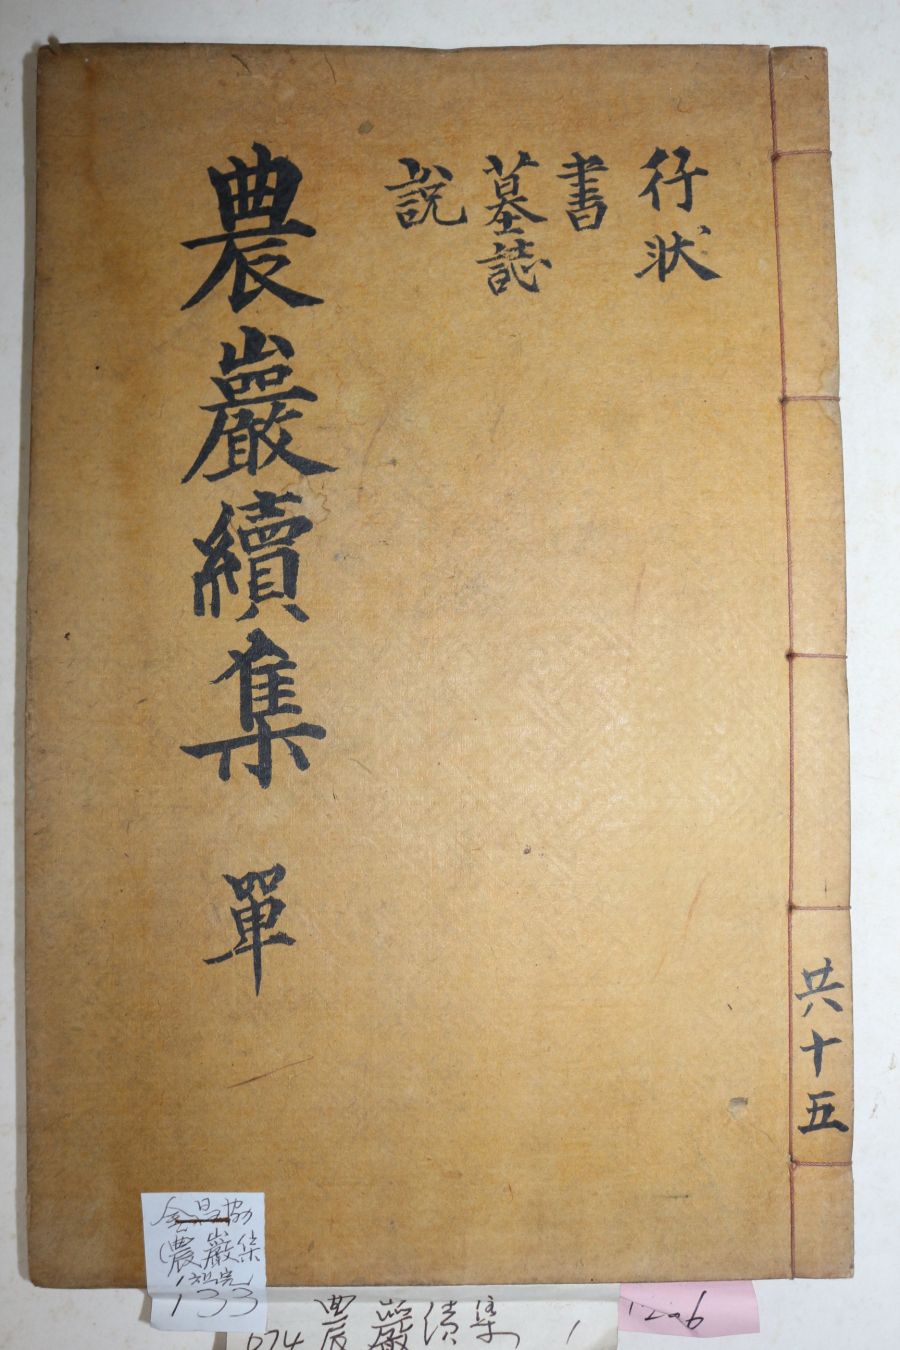 行狀
書
墓誌
說
農巖續集 單
共十五
金昌協
(農巖集
133
074 農巖續集 1
1206